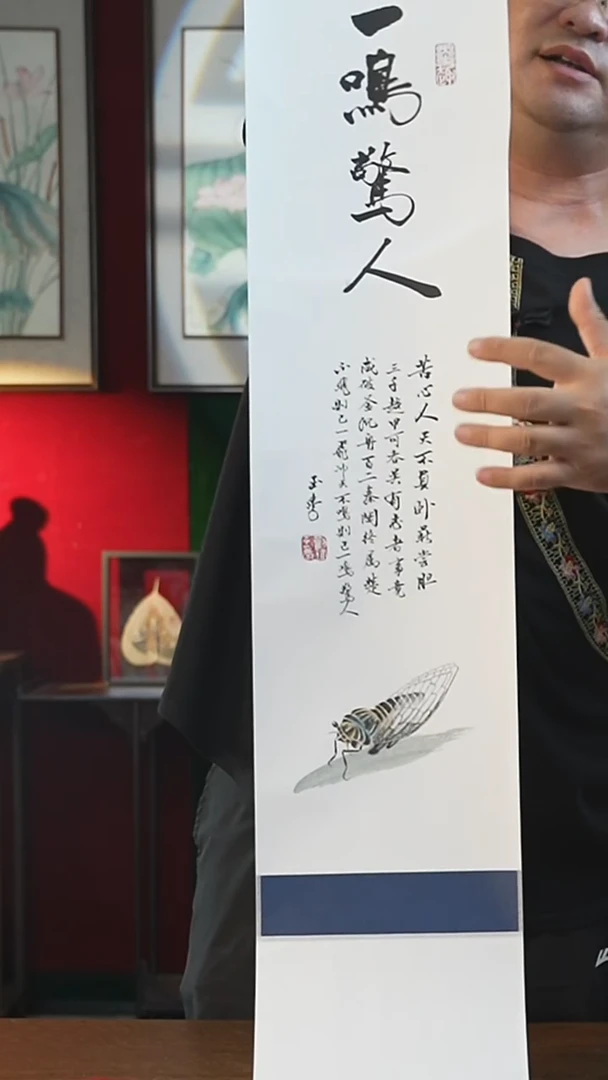 一鳴驚人
苦心人天不負卧薪嘗胆
三千越甲可吞吴有志者事竟
成破釜沉舟百二秦関终属楚
不飛則已一飛冲天不鳴則已一鳴驚人